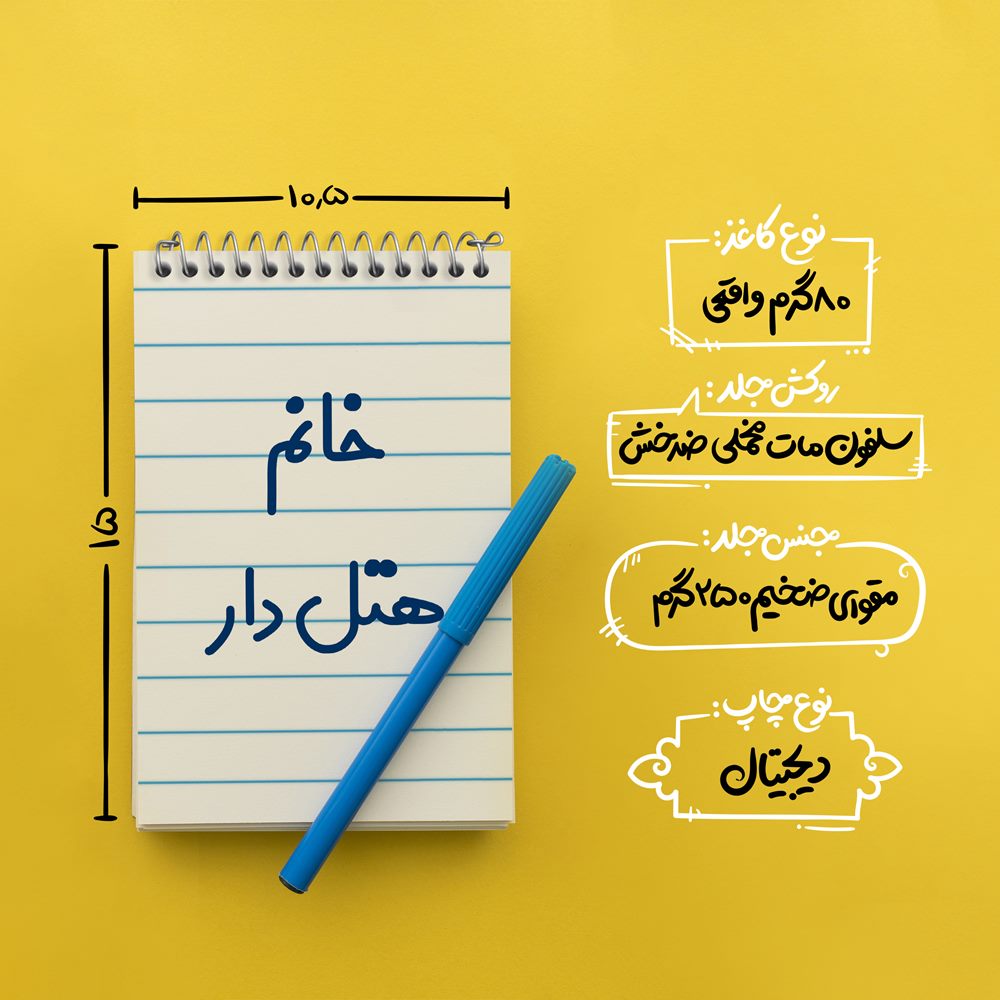 ۱۰٫۵
۱۵
خانم
هتل دار
نوع کاغذ:
۸۰گرم واقعی
روکش جلد:
سلفون مات مخملی ضدخش
جنس جلد:
مقوای ضخیم ۲۵۰گرم
نوع چاپ:
دیجیتال